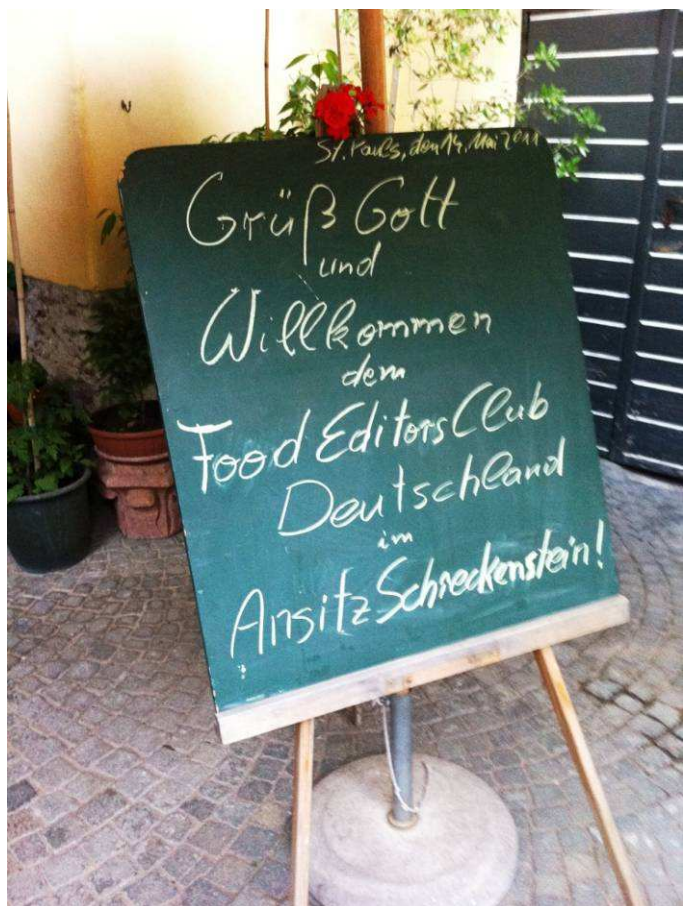 St. Pauls, den 14. Mai 2011
Grüß Gott
und
Willkommen
dem
Food Editors Club
Deutschland
im
Ansitz Schreckenstein!